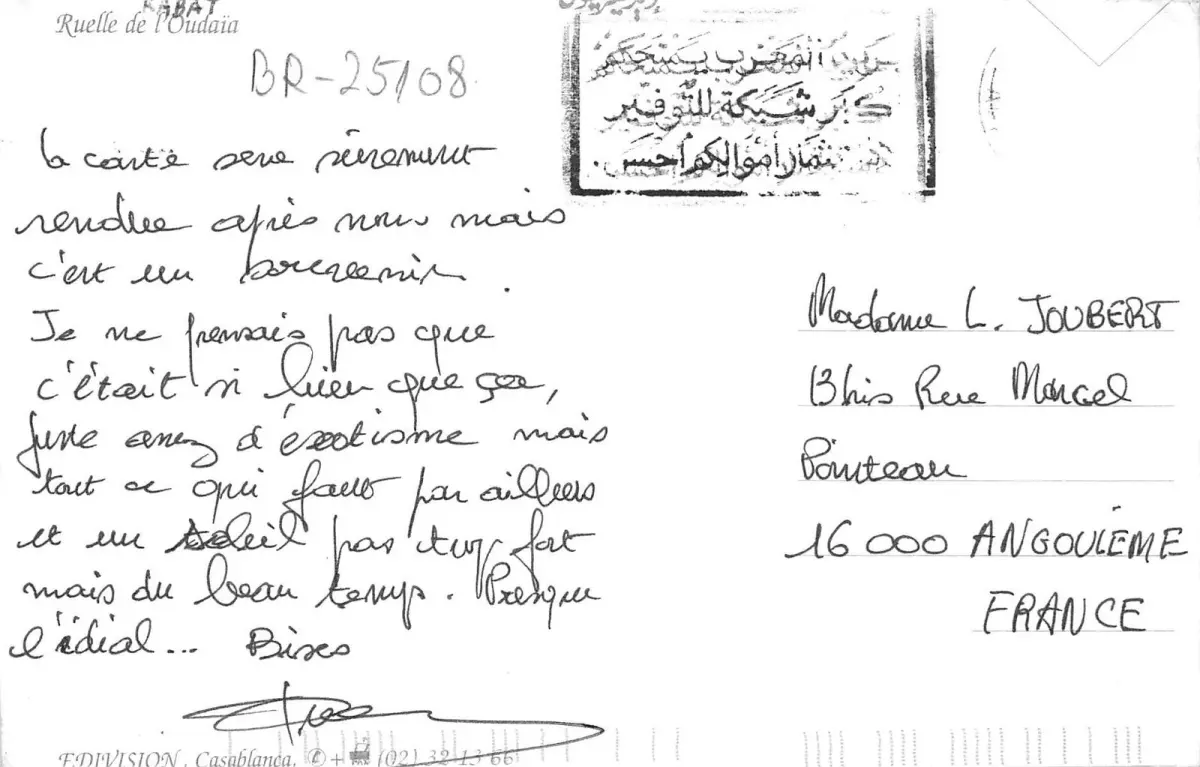 RABAT
Ruelle de l'Oudaïa
BR-25/08
la carte sera sûrement
rendue après nous mais
c'est un souvenir.
Je ne pensais pas que
c'était si bien que ça,
juste assez d'éxotisme mais
tout ce qui faut par ailleurs
et un soleil pas trop fort
mais du beau temps. Presque
l'idial... Bises
EDIVISION. Casablanca. ✆ + (02) 32 13 66
بريد المغرب يستحكم
شبكة للتوفير
أموالكم أحسن
Madame L. JOUBERT
13 bis Rue Marcel
Pointeau
16 000 ANGOULÈME
FRANCE